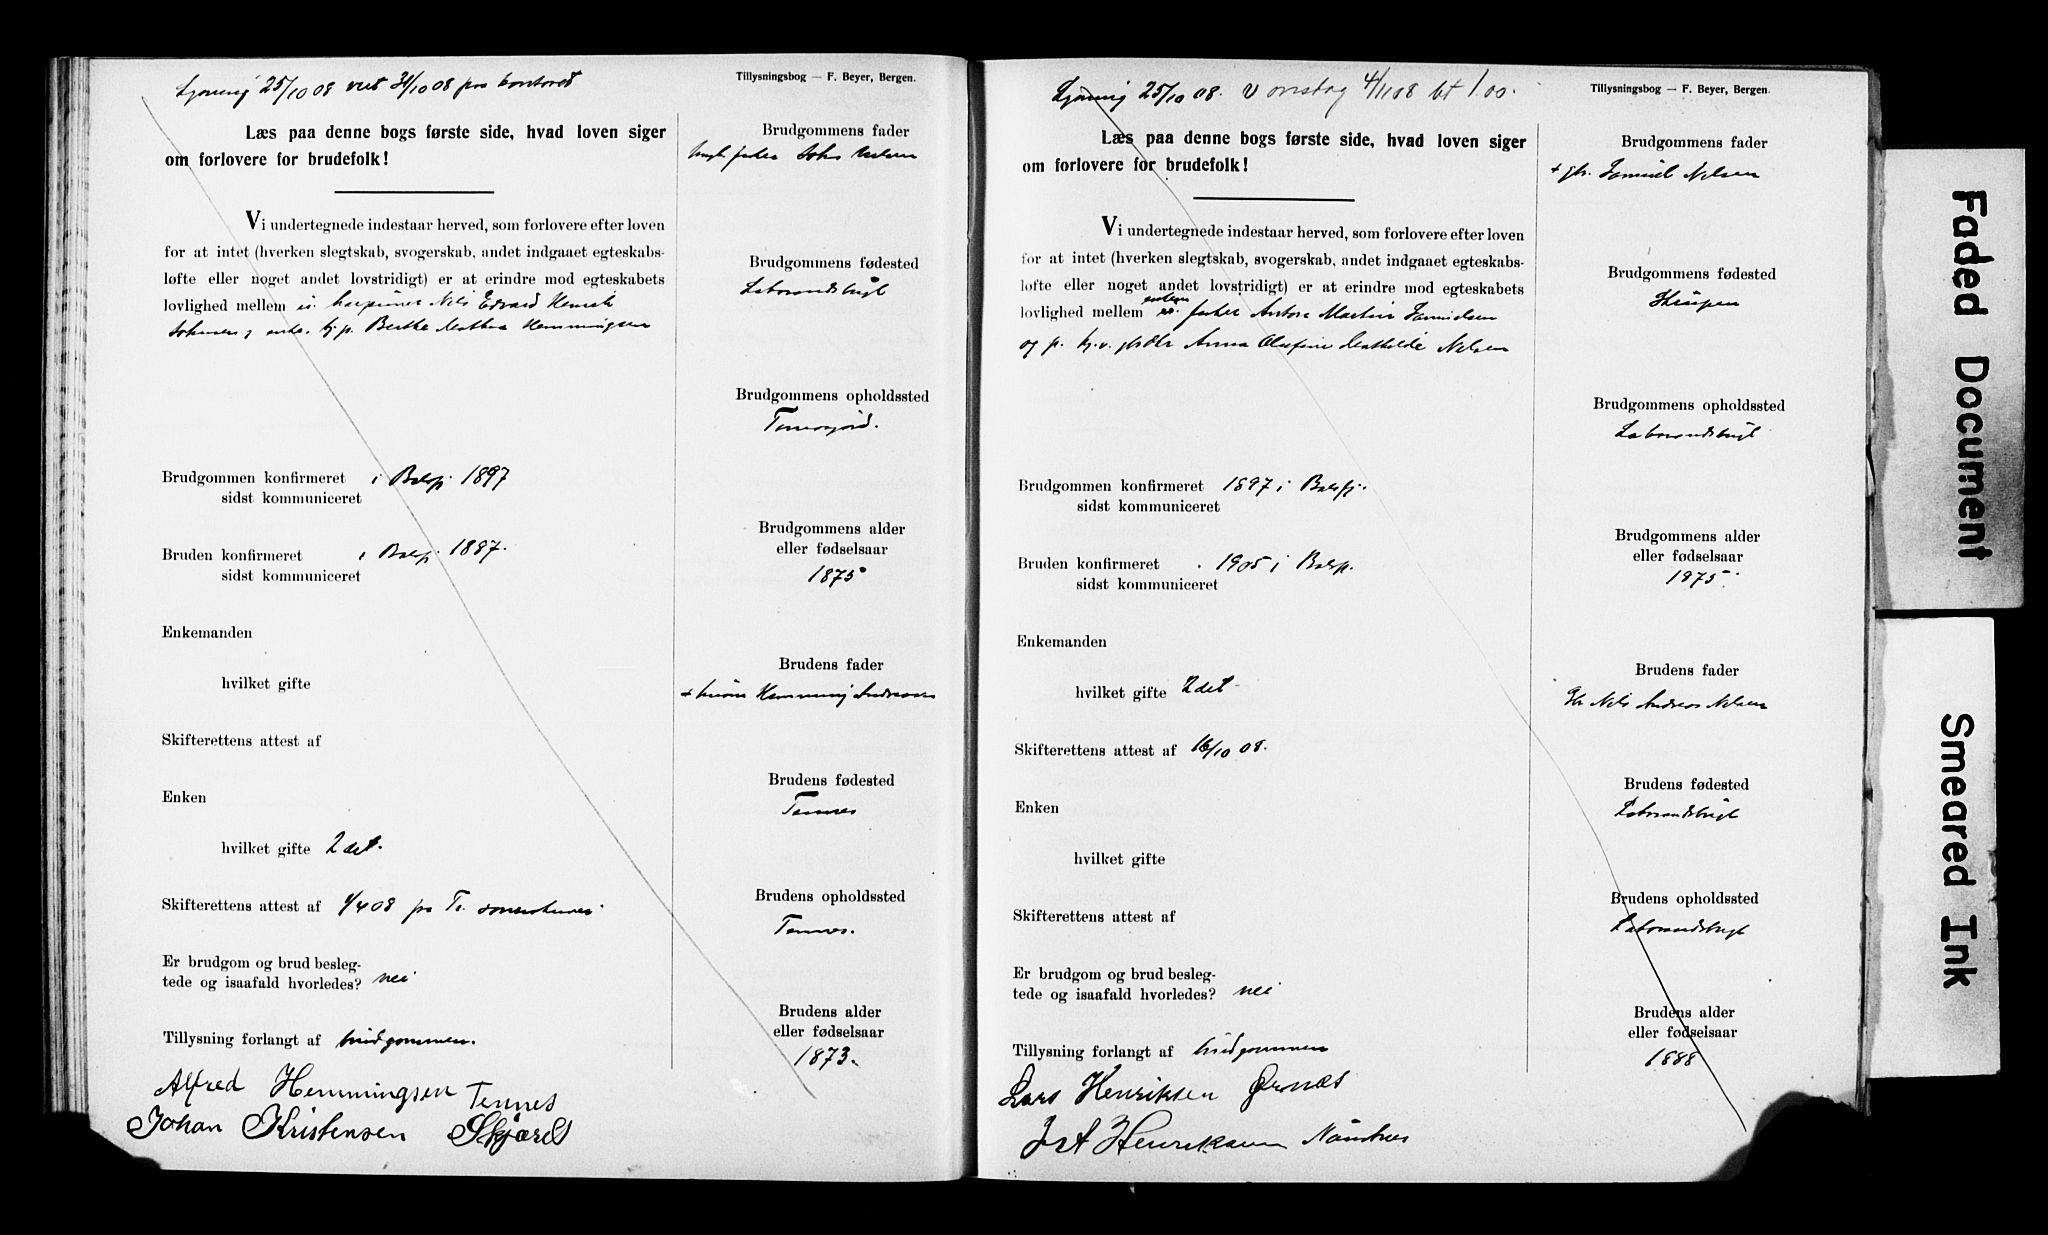 Lysning 25/10 08 viet 31/10 08 paa kontoret
Tillysningsbog — F. Beyer, Bergen.
Læs paa denne bogs første side, hvad loven siger
om forlovere for brudefolk!
Vi undertegnede indestaar herved, som forlovere efter loven
for at intet (hverken slegtskab, svogerskab, andet indgaaet egteskabs-
løfte eller noget andet lovstridigt) er at erindre mod egteskabets
lovlighed mellem Nils Edvard Henrik
Johnsen Berthe Mathea Hemmingsen
Brudgommen konfirmeret i Balsfj. 1897
sidst kommuniceret
Bruden konfirmeret i Balsfj. 1887.
sidst kommuniceret
Enkemanden
hvilket gifte
Skifterettens attest af
Enken
hvilket gifte 2det.
Skifterettens attest af
Er brudgom og brud besleg-
tede og isaafald hvorledes? nei
Tillysning forlangt af brudgommen.
Alfred Hemmingsen Tennes
Johan Kristensen Skjæret
Brudgommens fader
John
Brudgommens fødested
Laborandsbugt
Brudgommens opholdssted
Brudgommens alder
eller fødselsaar
1875
Brudens fader
+ Hemming Andreassen
Brudens fødested
Tennes
Brudens opholdssted
Tennes.
Brudens alder
eller fødselsaar
1873.
Lysning 25/10 08. V onsdag 4/11 08 bt 1.00.
Tillysningsbog — F. Beyer, Bergen.
Læs paa denne bogs første side, hvad loven siger
om forlovere for brudefolk!
Vi undertegnede indestaar herved, som forlovere efter loven
for at intet (hverken slegtskab, svogerskab, andet indgaaet egteskabs-
løfte eller noget andet lovstridigt) er at erindre mod egteskabets
lovlighed mellem Anton Martin Samuelsen
og p. Anna Olufine Mathilde Nilsen
Brudgommen konfirmeret 1897 i Balsfj.
sidst kommuniceret
Bruden konfirmeret 1905 i Balsfj.
sidst kommuniceret
Enkemanden
hvilket gifte 2det
Skifterettens attest af 16/10 08.
Enken
hvilket gifte
Skifterettens attest af
Er brudgom og brud besleg-
tede og isaafald hvorledes? nei
Tillysning forlangt af brudgommen
Lars Henriksen Ørnæs
Henriksen
Brudgommens fader
+ gbr. Samuel Nilsen
Brudgommens fødested
Brudgommens opholdssted
Laborandsbugt
Brudgommens alder
eller fødselsaar
1875.
Brudens fader
Gbr Nils Andreas Nilsen
Brudens fødested
Laborandsbugt
Brudens opholdssted
Laborandsbugt
Brudens alder
eller fødselsaar
1888
Faded Document
Smeared Ink